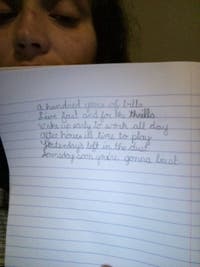 a hundred years of bills
Live fast and for the thrills
Wake up early to work all day
after hours is time to play
Yesterday's left in the dust
Someday soon you're gonna bust